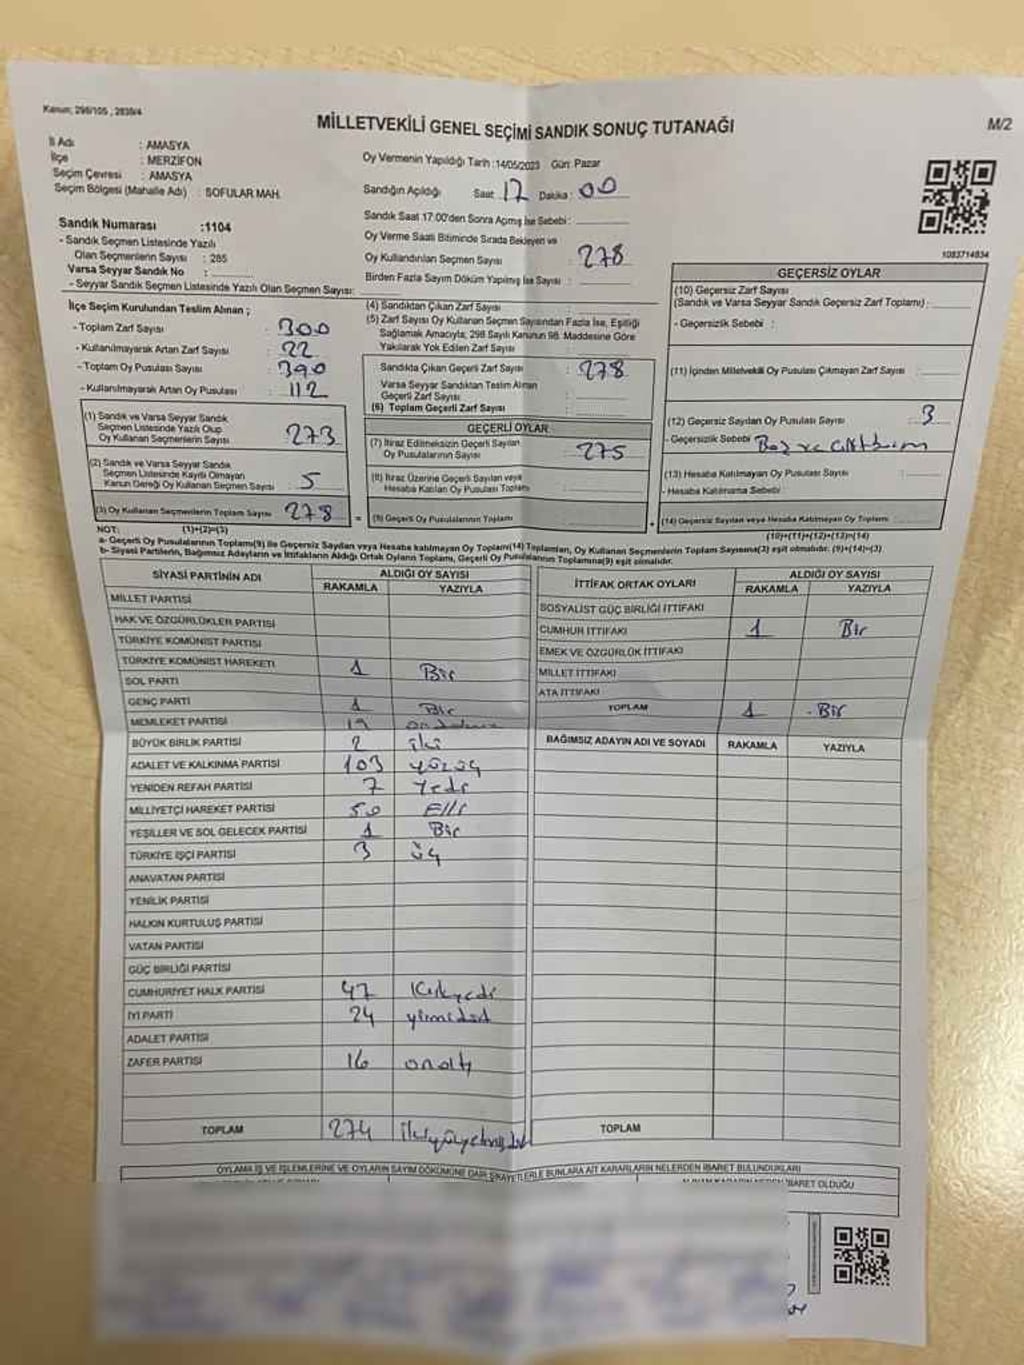 Kanun; 298/105 , 2839/4
MİLLETVEKİLİ GENEL SEÇİMİ SANDIK SONUÇ TUTANAĞI
M/2
İl Adı : AMASYA
İlçe : MERZİFON
Seçim Çevresi : AMASYA
Seçim Bölgesi (Mahalle Adı) : SOFULAR MAH.
Oy Vermenin Yapıldığı Tarih :14/05/2023 Gün: Pazar
Sandığın Açıldığı Saat 17 Dakika : 00
Sandık Saat 17:00'den Sonra Açmış İse Sebebi :
Oy Verme Saati Bitiminde Sırada Bekleyen ve
Oy Kullandırılan Seçmen Sayısı : 278
Birden Fazla Sayım Döküm Yapılmış İse Sayısı :
Sandık Numarası :1104
- Sandık Seçmen Listesinde Yazılı
Olan Seçmenlerin Sayısı : 285
Varsa Seyyar Sandık No :
- Seyyar Sandık Seçmen Listesinde Yazılı Olan Seçmen Sayısı:
1083714834
İlçe Seçim Kurulundan Teslim Alınan ;
- Toplam Zarf Sayısı : 300
- Kullanılmayarak Artan Zarf Sayısı : 22
- Toplam Oy Pusulası Sayısı : 390
- Kullanılmayarak Artan Oy Pusulası : 112
(1) Sandık ve Varsa Seyyar Sandık
Seçmen Listesinde Yazılı Olup
Oy Kullanan Seçmenlerin Sayısı : 273
(2) Sandık ve Varsa Seyyar Sandık
Seçmen Listesinde Kaydı Olmayan
Kanun Gereği Oy Kullanan Seçmen Sayısı : 5
(3) Oy Kullanan Seçmenlerin Toplam Sayısı : 278
(4) Sandıktan Çıkan Zarf Sayısı :
(5) Zarf Sayısı Oy Kullanan Seçmen Sayısından Fazla İse, Eşitliği
Sağlamak Amacıyla; 298 Sayılı Kanunun 98. Maddesine Göre
Yakılarak Yok Edilen Zarf Sayısı :
Sandıkta Çıkan Geçerli Zarf Sayısı : 278
Varsa Seyyar Sandıktan Teslim Alınan
Geçerli Zarf Sayısı :
(6) Toplam Geçerli Zarf Sayısı :
GEÇERLİ OYLAR
(7) İtiraz Edilmeksizin Geçerli Sayılan
Oy Pusulalarının Sayısı : 275
(8) İtiraz Üzerine Geçerli Sayılan veya
Hesaba Katılan Oy Pusulası Toplamı :
= (9) Geçerli Oy Pusulalarının Toplamı :
GEÇERSİZ OYLAR
(10) Geçersiz Zarf Sayısı
(Sandık ve Varsa Seyyar Sandık Geçersiz Zarf Toplamı) :
- Geçersizlik Sebebi :
(11) İçinden Milletvekili Oy Pusulası Çıkmayan Zarf Sayısı :
(12) Geçersiz Sayılan Oy Pusulası Sayısı : 3
- Geçersizlik Sebebi : Boş ve
(13) Hesaba Katılmayan Oy Pusulası Sayısı :
- Hesaba Katılmama Sebebi :
+ (14) Geçersiz Sayılan veya Hesaba Katılmayan Oy Toplamı :
NOT: (1)+(2)=(3)
(10)+(11)+(12)+(13)=(14)
a- Geçerli Oy Pusulalarının Toplamı(9) ile Geçersiz Sayılan veya Hesaba katılmayan Oy Toplamı(14) Toplamları, Oy Kullanan Seçmenlerin Toplam Sayısına(3) eşit olmalıdır. (9)+(14)=(3)
b- Siyasi Partilerin, Bağımsız Adayların ve İttifakların Aldığı Ortak Oyların Toplamı, Geçerli Oy Pusulalarının Toplamına(9) eşit olmalıdır.
SİYASİ PARTİNİN ADI ALDIĞI OY SAYISI
RAKAMLA YAZIYLA
MİLLET PARTİSİ
HAK VE ÖZGÜRLÜKLER PARTİSİ
TÜRKİYE KOMÜNİST PARTİSİ
TÜRKİYE KOMÜNİST HAREKETİ 1 Bir
SOL PARTİ
GENÇ PARTİ 1 Bir
MEMLEKET PARTİSİ 19
BÜYÜK BİRLİK PARTİSİ 2 iki
ADALET VE KALKINMA PARTİSİ 103 yüzüç
YENİDEN REFAH PARTİSİ 7 Yedi
MİLLİYETÇİ HAREKET PARTİSİ 50 Elli
YEŞİLLER VE SOL GELECEK PARTİSİ 1 Bir
TÜRKİYE İŞÇİ PARTİSİ 3 üç
ANAVATAN PARTİSİ
YENİLİK PARTİSİ
HALKIN KURTULUŞ PARTİSİ
VATAN PARTİSİ
GÜÇ BİRLİĞİ PARTİSİ
CUMHURİYET HALK PARTİSİ 47 Kırkyedi
İYİ PARTİ 24 yirmidört
ADALET PARTİSİ
ZAFER PARTİSİ 16 onaltı
TOPLAM 274 ikiyüzyetmişdört
İTTİFAK ORTAK OYLARI ALDIĞI OY SAYISI
RAKAMLA YAZIYLA
SOSYALİST GÜÇ BİRLİĞİ İTTİFAKI
CUMHUR İTTİFAKI 1 Bir
EMEK VE ÖZGÜRLÜK İTTİFAKI
MİLLET İTTİFAKI
ATA İTTİFAKI
TOPLAM 1 Bir
BAĞIMSIZ ADAYIN ADI VE SOYADI RAKAMLA YAZIYLA
TOPLAM
OYLAMA İŞ VE İŞLEMLERİNE VE OYLARIN SAYIM DÖKÜMÜNE DAİR ŞİKAYETLERLE BUNLARA AİT KARARLARIN NELERDEN İBARET BULUNDUKLARI
İBARET OLDUĞU